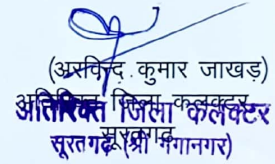 (अरविन्द कुमार जाखड़)
अतिरिक्त जिला कलक्टर
अतिरिक्त जिला कलेक्टर
सूरतगढ़
सूरतगढ़ (श्री गंगानगर)